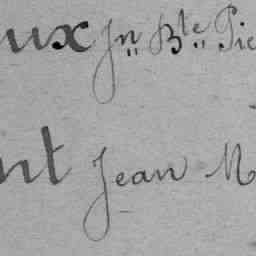 ux Jn Bte Pie
nt Jean M